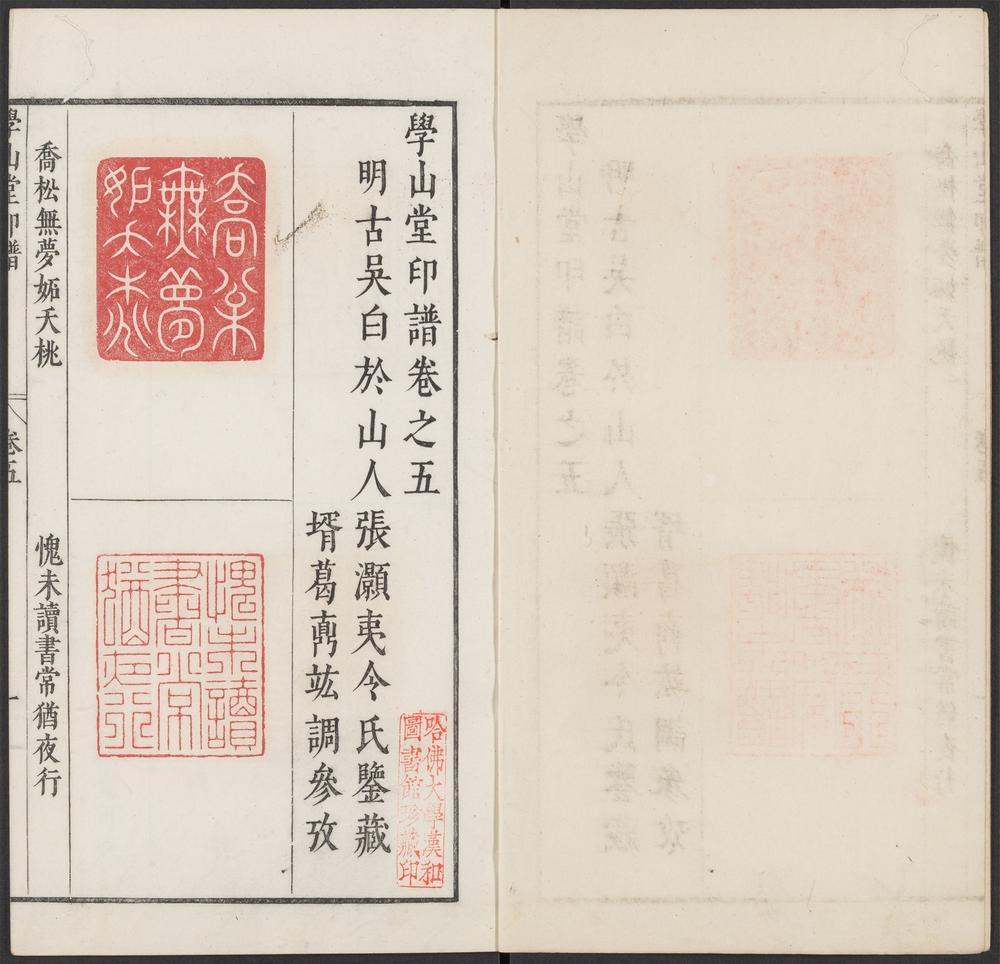 學山堂印譜卷之五
明古吳白於山人張灝夷令氏鑒藏
壻葛竑調參攷
哈佛大學漢和
圖書館珍藏印
喬松
無夢
妬夭桃
愧未讀
書常
猶夜行
喬松無夢妬夭桃
愧未讀書常猶夜行
學山堂印譜
卷五
一